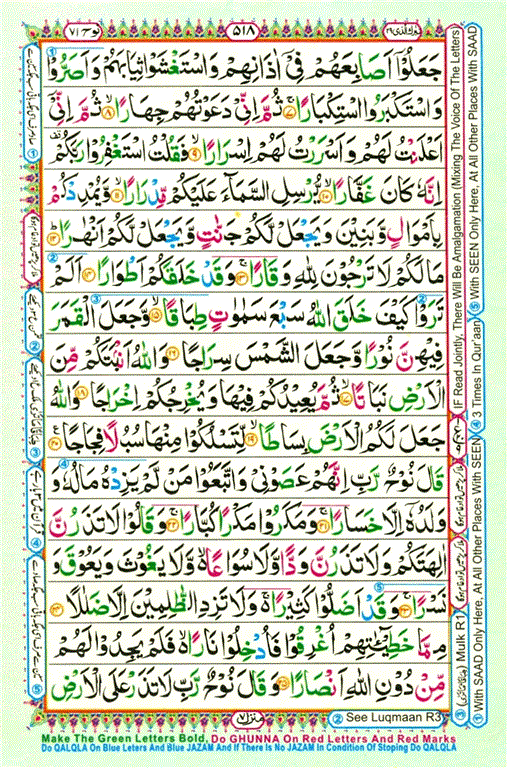 تبٰرك الذی ٢٩ ٥١٨ نوح ٧١
جَعَلُوْٓا اَصَابِعَهُمْ فِیْٓ اٰذَانِهِمْ وَاسْتَغْشَوْا ثِيَابَهُمْ وَاَصَرُّوْا
وَاسْتَكْبَرُوا اسْتِكْبَارًا ۚ‏﴿۷﴾ ثُمَّ اِنِّیْ دَعَوْتُهُمْ جِهَارًا ۙ‏﴿۸﴾ ثُمَّ اِنِّیْٓ
اَعْلَنْتُ لَهُمْ وَاَسْرَرْتُ لَهُمْ اِسْرَارًا ۙ‏﴿۹﴾ فَقُلْتُ اسْتَغْفِرُوْا رَبَّكُمْ
اِنَّهٗ كَانَ غَفَّارًا ۙ‏﴿۱۰﴾ يُّرْسِلِ السَّمَآءَ عَلَيْكُمْ مِّدْرَارًا ۙ‏﴿۱۱﴾ وَّيُمْدِدْكُمْ
بِاَمْوَالٍ وَّبَنِيْنَ وَيَجْعَلْ لَّكُمْ جَنّٰتٍ وَّيَجْعَلْ لَّكُمْ اَنْهٰرًا ؕ‏﴿۱۲﴾
مَا لَكُمْ لَا تَرْجُوْنَ لِلّٰهِ وَقَارًا ۚ‏﴿۱۳﴾ وَقَدْ خَلَقَكُمْ اَطْوَارًا ‏﴿۱۴﴾ اَلَمْ
تَرَوْا كَيْفَ خَلَقَ اللّٰهُ سَبْعَ سَمٰوٰتٍ طِبَاقًا ۙ‏﴿۱۵﴾ وَّجَعَلَ الْقَمَرَ
فِيْهِنَّ نُوْرًا وَّجَعَلَ الشَّمْسَ سِرَاجًا ‏﴿۱۶﴾ وَاللّٰهُ اَنْۢبَتَكُمْ مِّنَ
الْاَرْضِ نَبَاتًا ۙ‏﴿۱۷﴾ ثُمَّ يُعِيْدُكُمْ فِيْهَا وَيُخْرِجُكُمْ اِخْرَاجًا ‏﴿۱۸﴾ وَاللّٰهُ
جَعَلَ لَكُمُ الْاَرْضَ بِسَاطًا ۙ‏﴿۱۹﴾ لِّتَسْلُكُوْا مِنْهَا سُبُلًا فِجَاجًا ‏﴿۲۰﴾
قَالَ نُوْحٌ رَّبِّ اِنَّهُمْ عَصَوْنِیْ وَاتَّبَعُوْا مَنْ لَّمْ يَزِدْهُ مَالُهٗ وَ
وَلَدُهٗٓ اِلَّا خَسَارًا ۚ‏﴿۲۱﴾ وَمَكَرُوْا مَكْرًا كُبَّارًا ۚ‏﴿۲۲﴾ وَقَالُوْا لَا تَذَرُنَّ
اٰلِهَتَكُمْ وَلَا تَذَرُنَّ وَدًّا وَّلَا سُوَاعًا ۙ وَّلَا يَغُوْثَ وَيَعُوْقَ وَ
نَسْرًا ۚ‏﴿۲۳﴾ وَقَدْ اَضَلُّوْا كَثِيْرًا ۚ وَلَا تَزِدِ الظّٰلِمِيْنَ اِلَّا ضَلٰلًا ‏﴿۲۴﴾
مِمَّا خَطِيْٓــٰٔتِهِمْ اُغْرِقُوْا فَاُدْخِلُوْا نَارًا ۙ فَلَمْ يَجِدُوْا لَهُمْ
مِّنْ دُوْنِ اللّٰهِ اَنْصَارًا ‏﴿۲۵﴾ وَقَالَ نُوْحٌ رَّبِّ لَا تَذَرْ عَلَی الْاَرْضِ
منزل ٧
② See Luqmaan R3
③ Mulk R1
① With SAAD Only Here, At All Other Places With SEEN
④ 3 Times In Qur'aan
⑤ With SEEN Only Here, At All Other Places With SAAD
IF Read Jointly, There Will Be Amalgamation (Mixing The Voice Of The Letters
Make The Green Letters Bold, Do GHUNNA On Red Letters And Red Marks
Do QALQLA On Blue Leters And Blue JAZAM And If There Is No JAZAM In Condition Of Stoping Do QALQLA